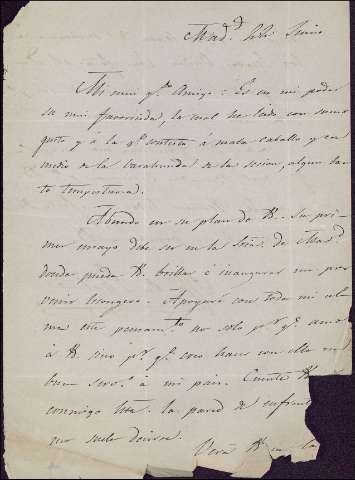 Mad.d
Mi muy q.do Amigo: Es en mi poder
su muy favorecida, la cual he leido con sumo
gusto y á la q.e contesto á mata caballo y en
medio de la barahunda de la sesion, algun tan
to tempestuosa.
Abundo en su plan de V. Su pri-
mer ensayo debe ser en la de Mad.d
donde pueda V. brillar é inaugurar un por
venir lisongero. Apoyaré con toda mi al
ma este pensam.to no solo p.r q.e amo
á V. sino p.r q.e creo hacer con ello un
buen serv.o á mi pais. Cuente V.
conmigo hta. la pared de enfrente
Verá V. en la